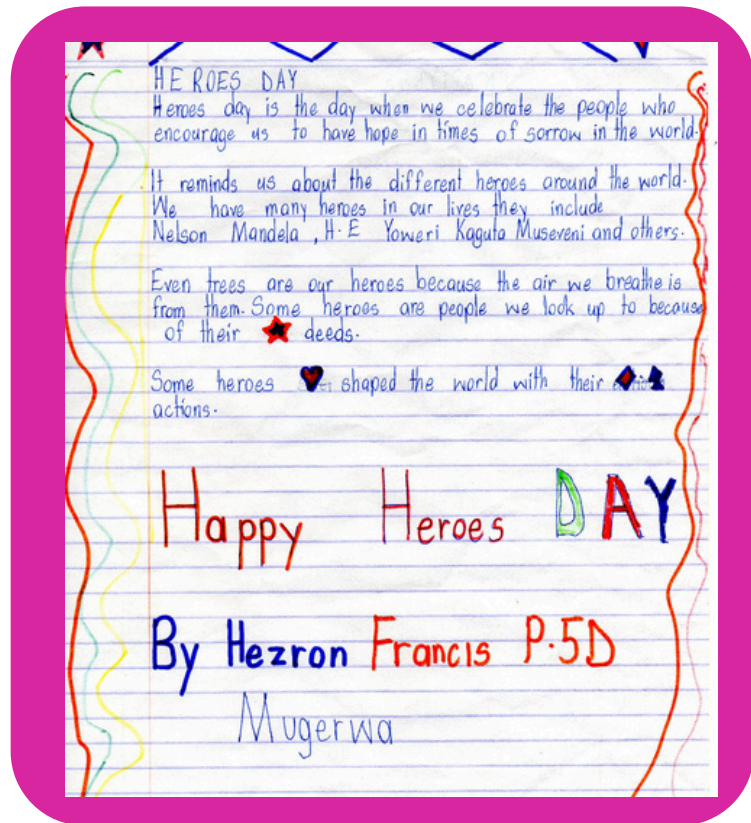 HEROES DAY
Heroes day is the day when we celebrate the people who
encourage us to have hope in times of sorrow in the world.
It reminds us about the different heroes around the world.
We have many heroes in our lives they include
Nelson Mandela , H.E Yoweri Kaguta Museveni and others.
Even trees are our heroes because the air we breathe is
from them. Some heroes are people we look up to because
of their deeds.
Some heroes shaped the world with their
actions.
Happy Heroes DAY
By Hezron Francis P.5D
Mugerwa